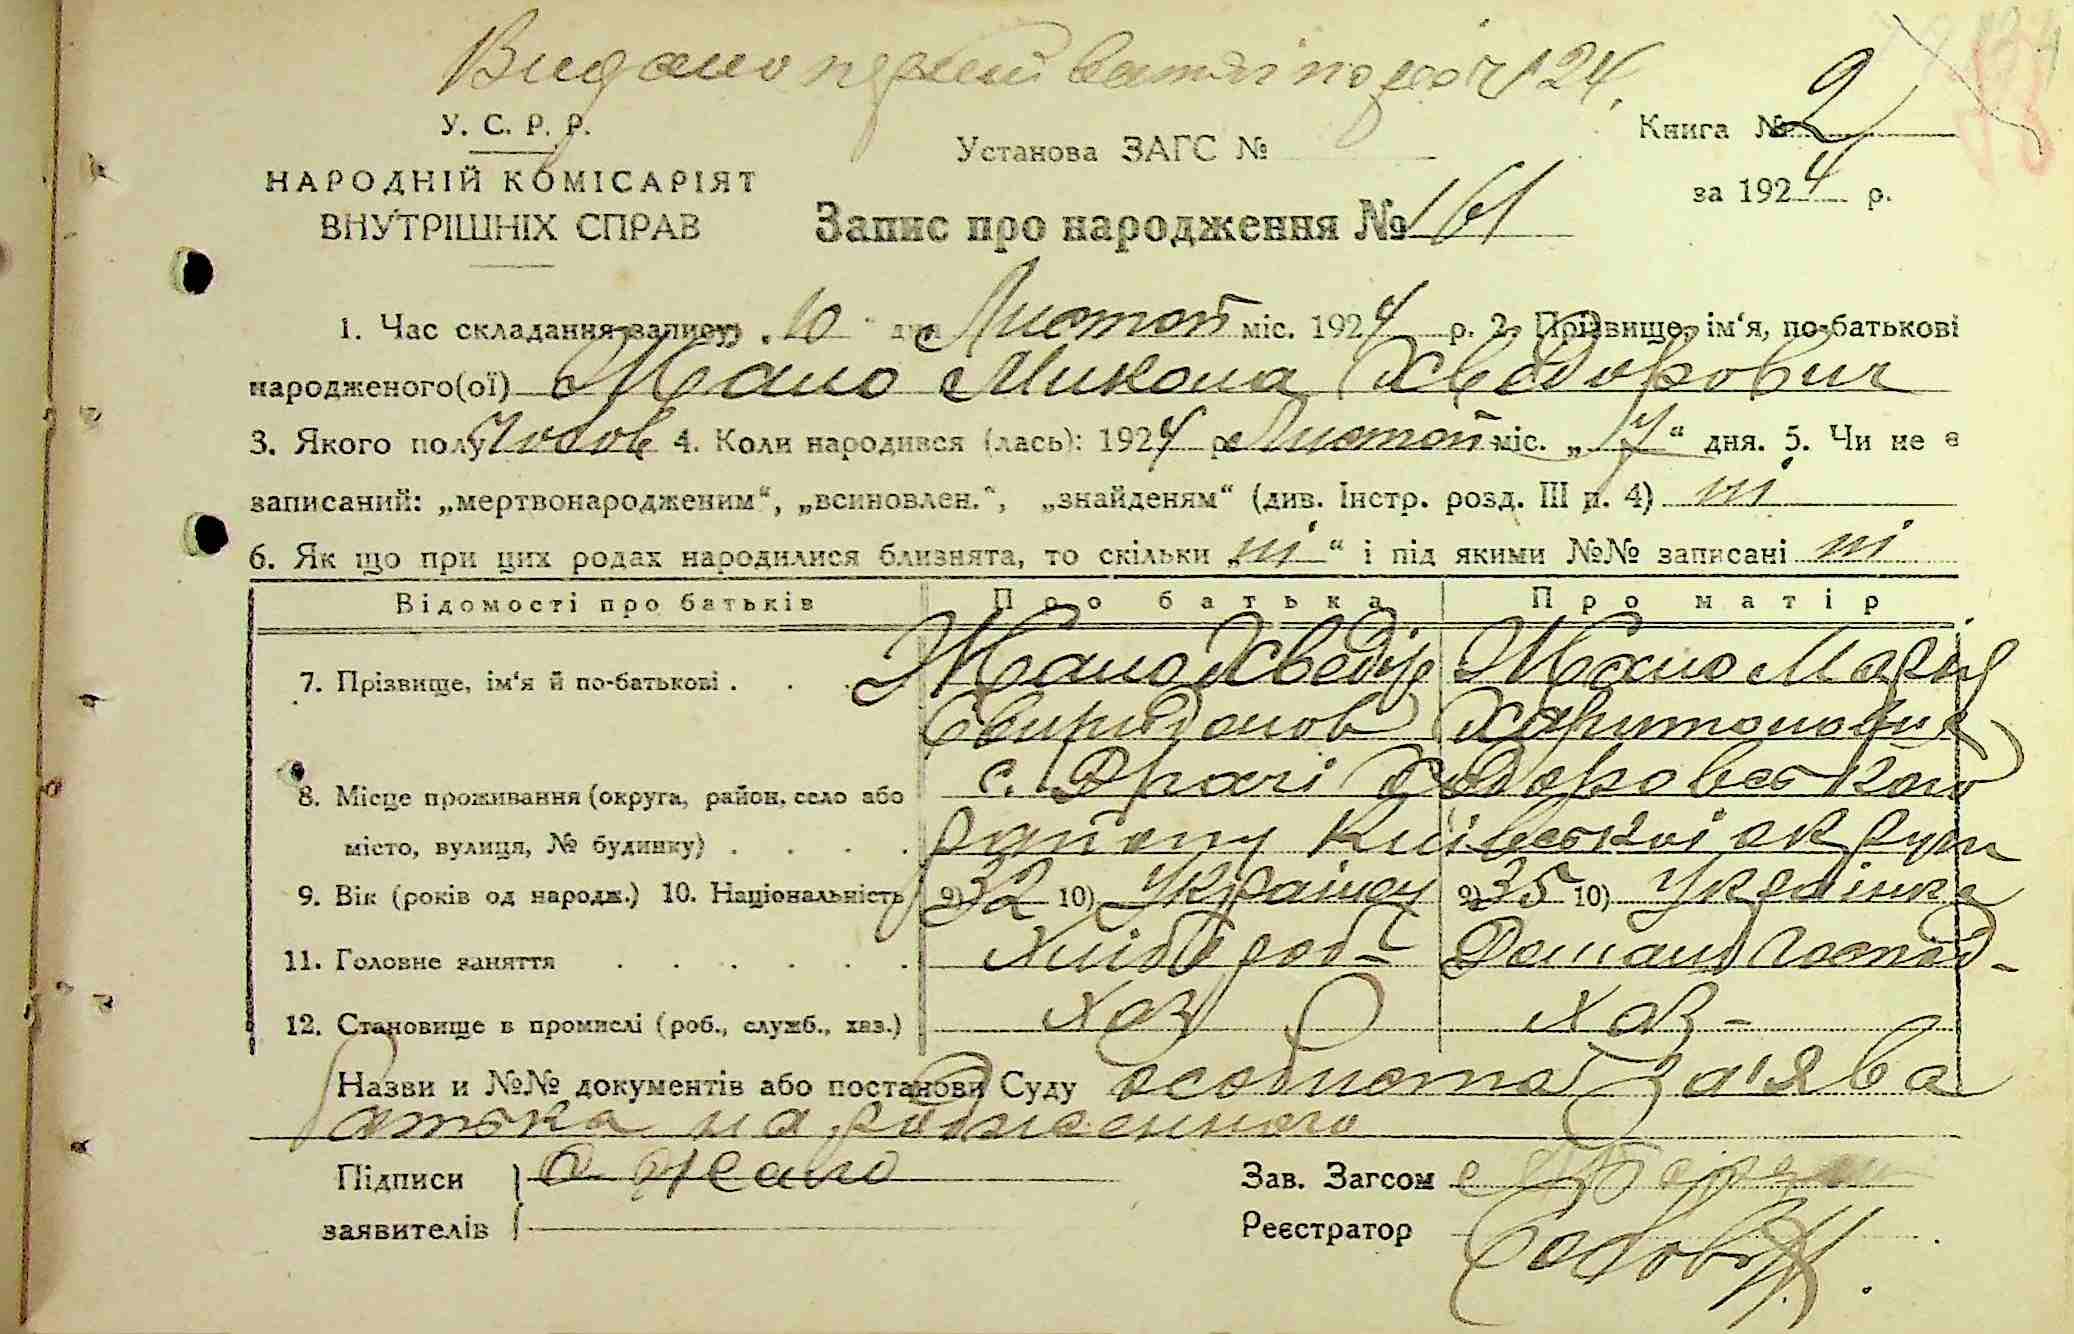 Видано
У. С. Р. Р.
НАРОДНІЙ КОМІСАРІЯТ
ВНУТРІШНІХ СПРАВ
Установа ЗАГС №
Книга № 2
за 1924 р.
Запис про народження № 161
1. Час складання запису „10“ дня Листоп міс. 1924 р. 2. Прізвище, ім'я, по-батькові
народженого(ої) Жало Микола Хведорович
3. Якого полу Чолов 4. Коли народився (лась): 1924 р. Листоп міс. „7“ дня. 5. Чи не є
записаний: „мертвонародженим“, „всиновлен.“, „знайденям“ (див. Інстр. розд. III п. 4) ні
6. Як що при цих родах народилися близнята, то скільки „ні“ і під якими №№ записані ні
Відомості про батьків Про батька Про матір
7. Прізвище, ім'я й по-батькові . . . Жало Хведір Жало Марія
Свиридонов Харитоновна
8. Місце проживання (округа, район, село або с. Драчі Ходоровського
місто, вулиця, № будинку) . . . . району Київської округи
9. Вік (років од народж.) 10. Національність 9) 32 10) Українец 9) 35 10) Українка
11. Головне заняття . . . . . . Хлібороб Домашн господ-
12. Становище в промислі (роб., служб., хаз.) Хаз Хаз-
Назви и №№ документів або постанови Суду особиста за'ява
батька народженного
Підписи Жало Зав. Загсом
заявителів Реєстратор